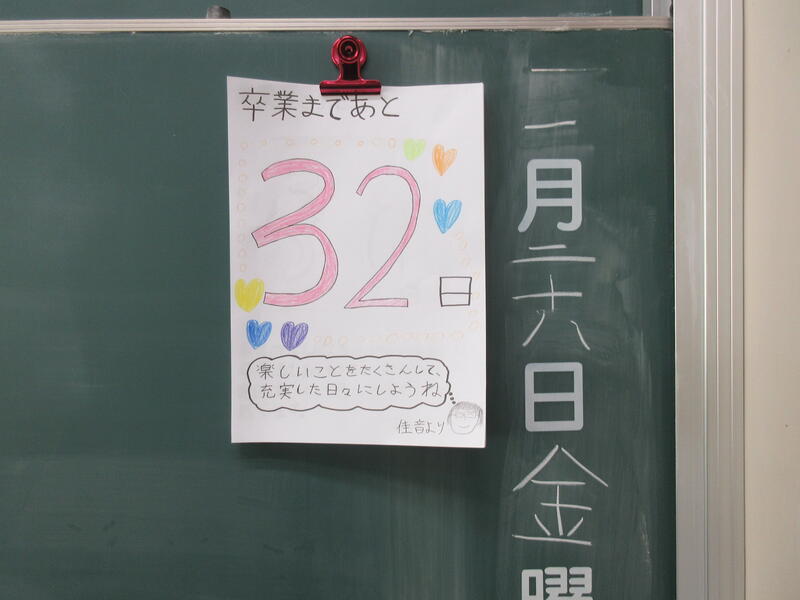 卒業まであと
32日
楽しいことをたくさんして、
充実した日々にしようね
佳音より
一月二十八日金曜